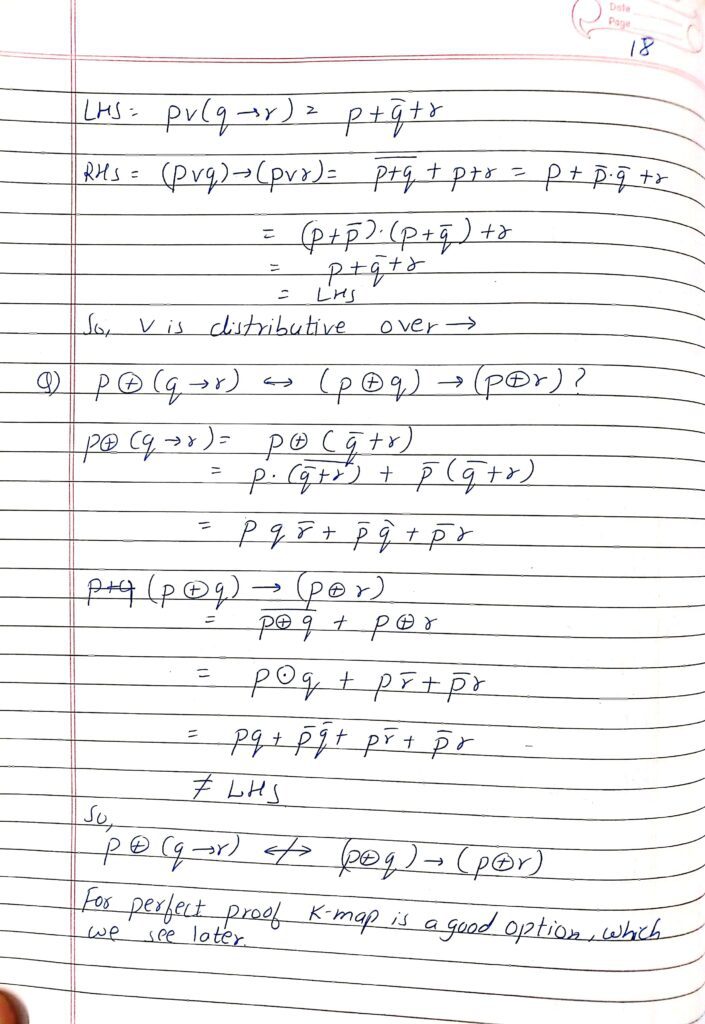 Date
Page
18
LHS = p∨(q→r) = p+q̅+r
RHS = (p∨q)→(p∨r) = \overline{p+q} + p+r = p + p̅·q̅ +r
= (p+p̅)·(p+q̅) +r
= p+q̅+r
= LHS
So, ∨ is distributive over →
Q) p⊕(q→r) ↔ (p⊕q) → (p⊕r)?
p⊕(q→r) = p⊕(q̅+r)
= p·\overline{(q̅+r)} + p̅(q̅+r)
= p q r̅ + p̅ q̅ + p̅ r
p+q (p⊕q) → (p⊕r)
= \overline{p⊕q} + p⊕r
= p⊙q + p r̅ + p̅ r
= pq + p̅ q̅ + p r̅ + p̅ r
≠ LHS
So,
p⊕(q→r) ↮ (p⊕q) → (p⊕r)
For perfect proof K-map is a good option, which
we see later.